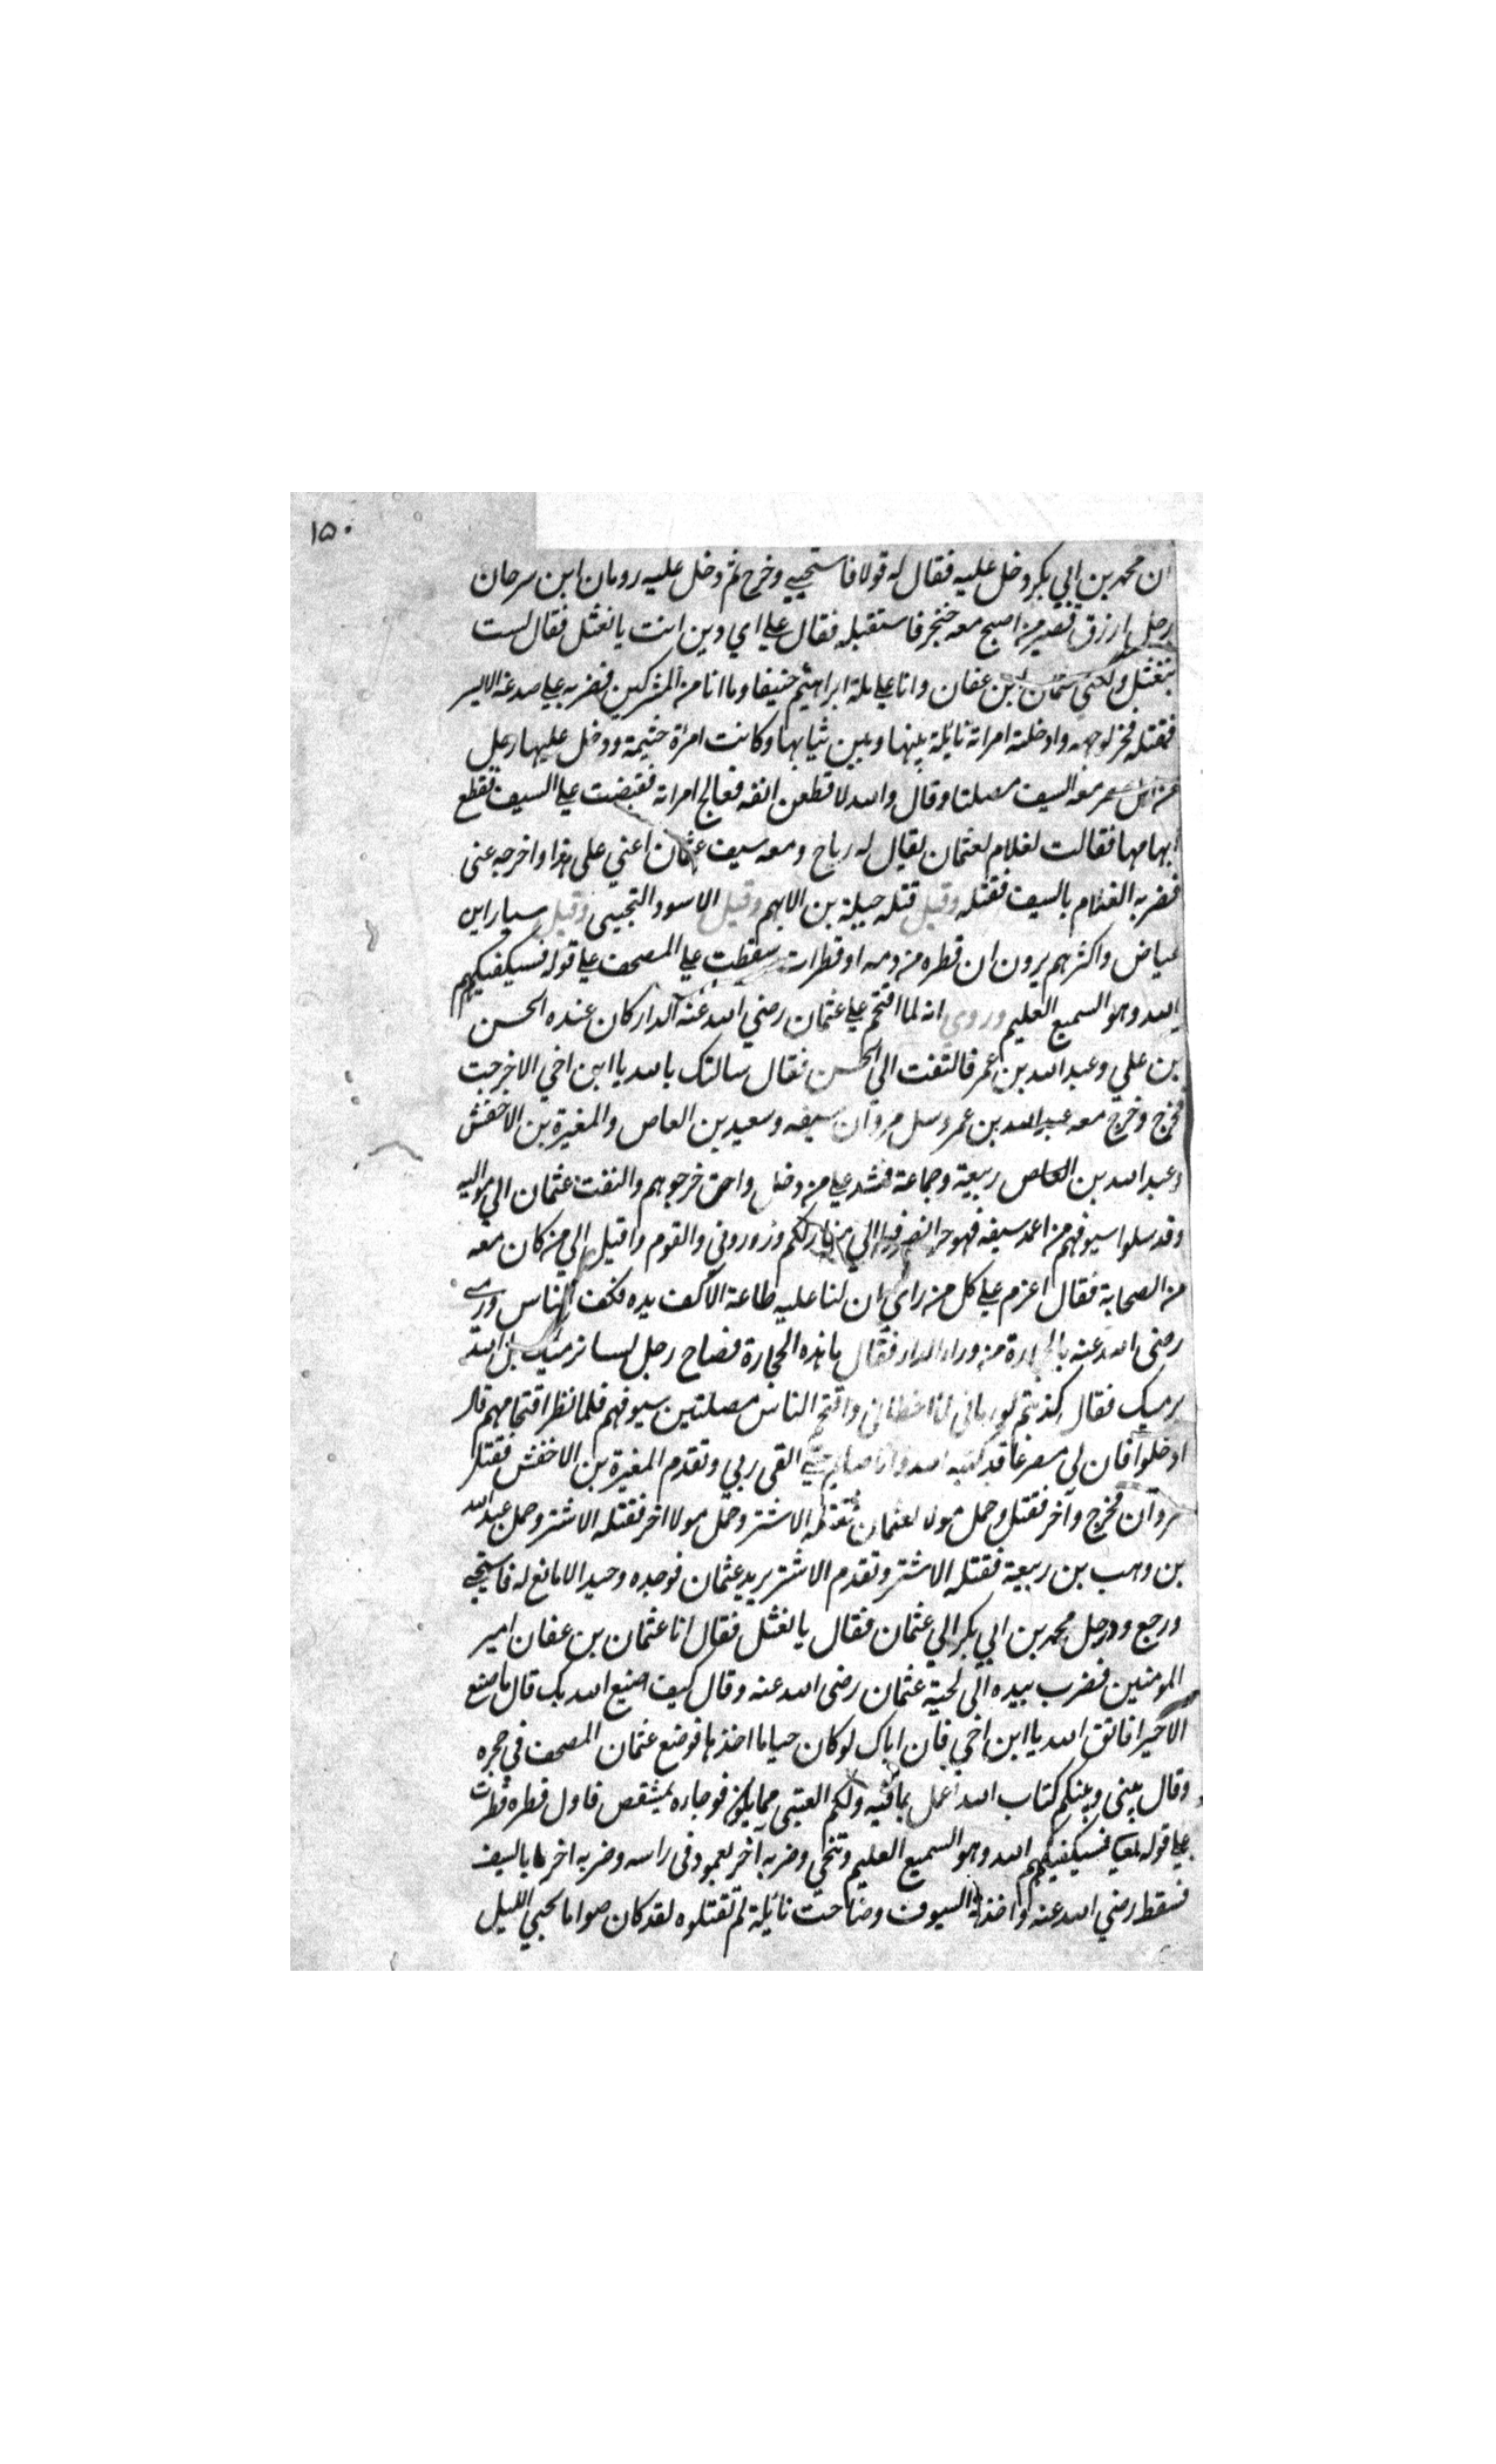 ١٥٠
ان محمد بن ابي بكر دخل عليه فقال له قولا فاستحيي وخرج ثم دخل عليه رومان ابن سرحان
رجل ازرق قصير من اصبح معه خنجر فاستقبله فقال علي اي دين انت يا نعثل فقال لست
بنعثل ولكني عثمان بن عفان وانا علي ملة ابراهيم حنيفا وما انا من المشركين فضربه علي صدغه الايسر
فقتله فخر لوجهه وادخلته امراته نائلة بينها وبين ثيابها وكانت امراة جثيمة ودخل عليها رجل
من اهل مصر معه السيف مصلتا وقال والله لاقطعن انفه فعالج امراته فقبضت علي السيف فقطع
ابهامها فقالت لغلام لعثمان يقال له رباح ومعه سيف عثمان اعني على هذا واخرجه عنى
فضربه الغلام بالسيف فقتله وقيل قتله جبلة بن الايهم وقيل الاسود التجيبى وقيل سيار ابن
عياض واكثرهم يرون ان قطره من دمه او قطرات سقطت علي المصحف علي قوله فسيكفيكهم
الله وهو السميع العليم وروي انه لما اقتحم علي عثمان رضي الله عنه الدار كان عنده الحسن
بن علي وعبد الله بن عمر فالتفت الي الحسن فقال سالتك بالله يا ابن اخي الا خرجت
فخرج وخرج معه عبد الله بن عمر وسل مروان سيفه وسعيد بن العاص والمغيرة بن الاخفش
وعبد الله بن العاص ربيعة وجماعة فشد علي من دخل واحق خرجوهم والتفت عثمان الي مواليه
وقد سلوا سيوفهم من اغمد سيفه فهو حر انصرفوا الي منازلكم وزوروني والقوم واقبل الي من كان معه
من الصحابة فقال اعزم علي كل من راي ان لنا عليه طاعة الا كف يده فكف الناس ورمى
رضى الله عنه بالحجارة من وراء الدار فقال ما هذه الحجارة فصاح رجل لسنا نرميك بل الله
يرميك فقال كذبتم لو رمانى لما اخطانى واقتحم الناس مصلتين سيوفهم فلما نظر اقتحامهم قال
ادخلوا فان لي مصرعا قد كتبه الله وانا صابر حتي القى ربي وتقدم المغيرة بن الاخفش فقتل
مروان فخرج وآخر فقتل وحمل مولا لعثمان فقتله الاشتر وحمل مولا اخر فقتله الاشتر وحمل عبد الله
بن وهب بن ربيعة فقتله الاشتر وتقدم الاشتر يريد عثمان فوجده وحيدا لا مانع له فاستحي
ورجع ودخل محمد بن ابي بكر الي عثمان فقال يا نعثل فقال انا عثمان بن عفان امير
المومنين فضرب بيده الى لحية عثمان رضى الله عنه وقال كيف صنيع الله بك قال ما صنع
الا خيرا فاتق الله يا ابن اخي فان اباك لو كان حيا ما اخذها فوضع عثمان المصحف في حجره
وقال بينى وبينكم كتاب الله اعمل بما فيه ولكم العتبى مما يكن فوجاره بمشقص فاول قطره قطرت
علي قوله تعالي فسيكفيكهم الله وهو السميع العليم وتنحي وضربه آخر بعمود فى راسه وضربه اخر بالسيف
فسقط رضي الله عنه واخذته السيوف وصاحت نائلة لم تقتلوه لقد كان صواما يحيي الليل